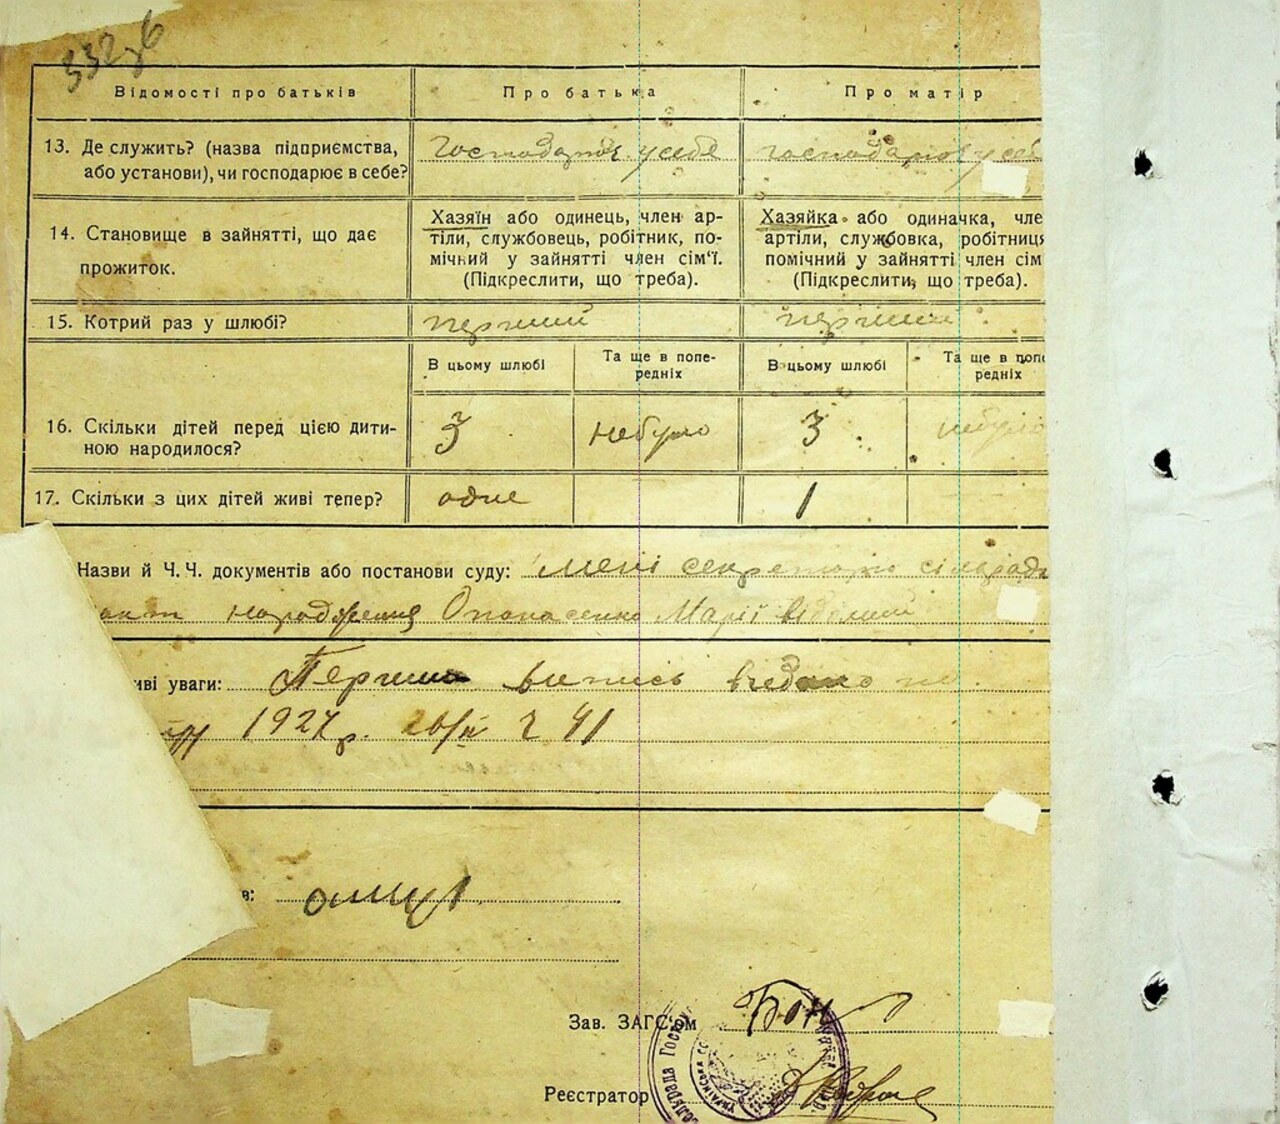 332зб
Відомості про батьків
Про батька
Про матір
13. Де служить? (назва підприємства,
або установи), чи господарює в себе?
Господарює у себе
господарює у себе
14. Становище в зайнятті, що дає
прожиток.
Хазяїн або одинець, член ар-
тіли, службовець, робітник, по-
мічний у зайнятті член сім'ї.
(Підкреслити, що треба).
Хазяйка або одиначка, чле
артіли, службовка, робітниця
помічний у зайнятті член сім
(Підкреслити, що треба).
15. Котрий раз у шлюбі?
перший
перший
В цьому шлюбі
Та ще в попе-
редніх
В цьому шлюбі
Та ще в попе
редніх
16. Скільки дітей перед цією дити-
ною народилося?
3
небуло
3
небуло
17. Скільки з цих дітей живі тепер?
одне
1
Назви й Ч. Ч. документів або постанови суду: мені секретарю сільради
акт народження Опонасенко Марії відомий
иві уваги: Перший випись видано
1927 р. 26/ІІ 2 41
в:
Зав. ЗАГС'ом
Реєстратор